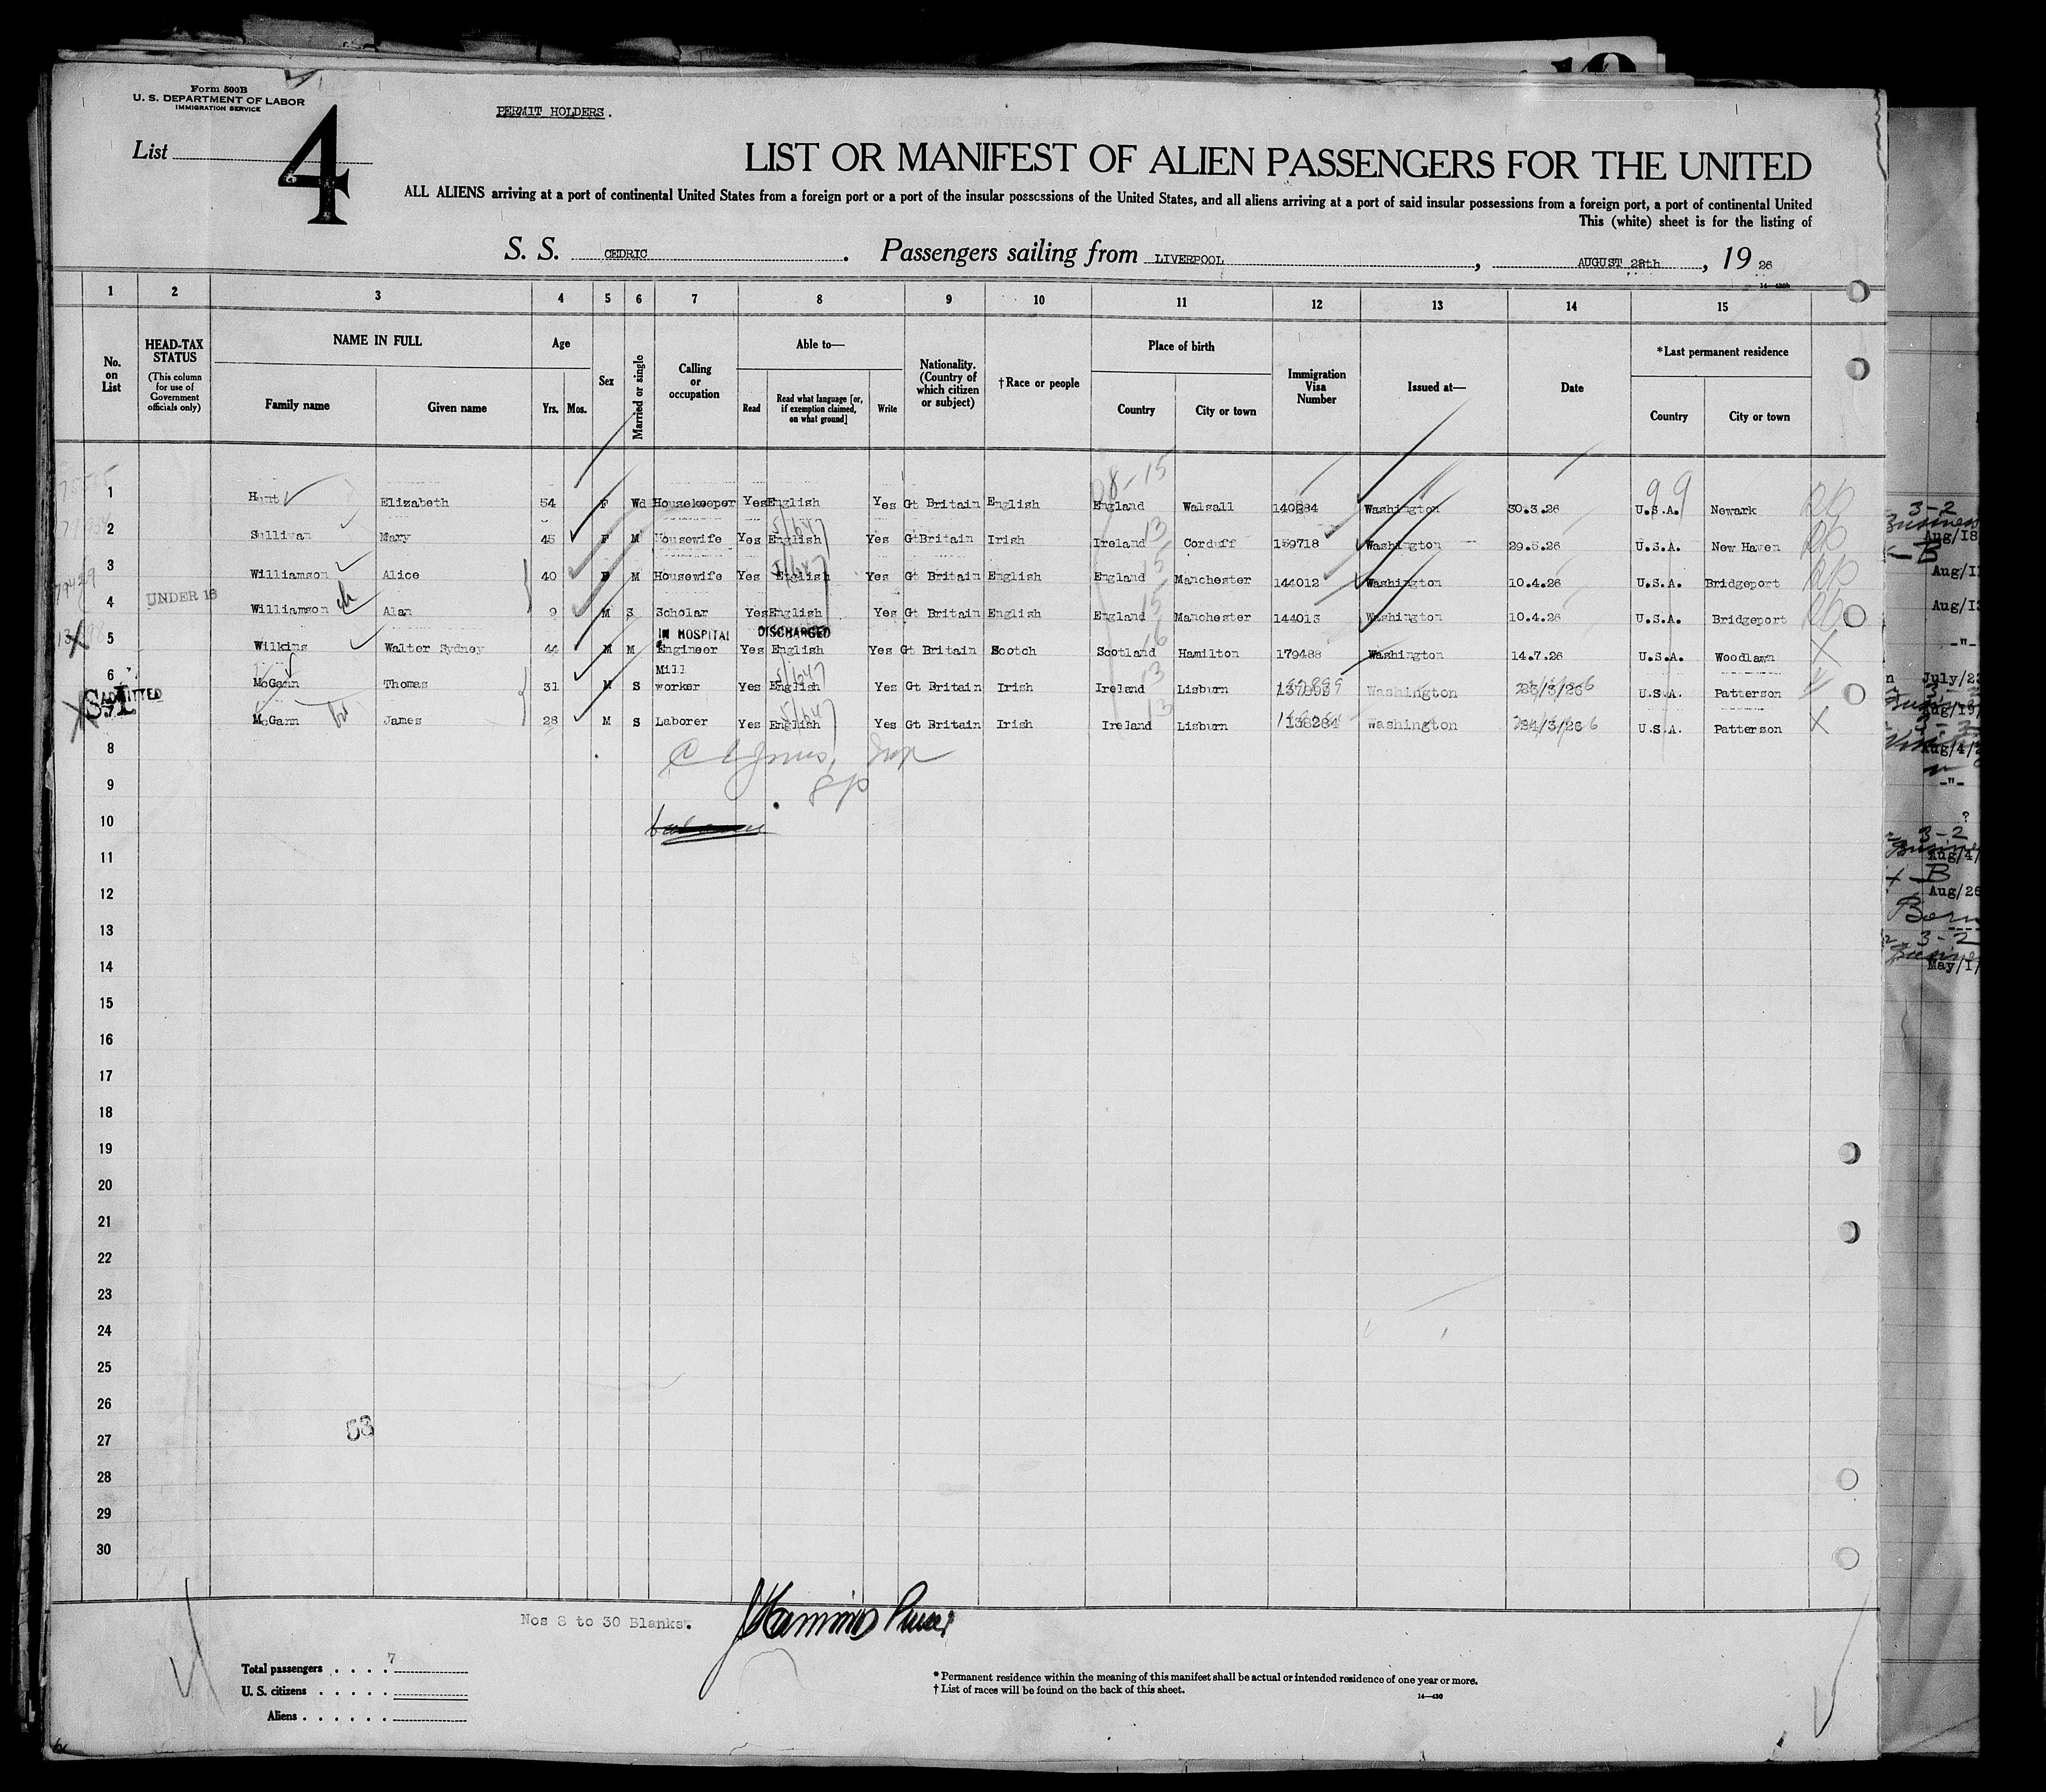 Form 500B
U. S. DEPARTMENT OF LABOR
IMMIGRATION SERVICE
PERMIT HOLDERS.
List 4
LIST OR MANIFEST OF ALIEN PASSENGERS FOR THE UNITED
ALL ALIENS arriving at a port of continental United States from a foreign port or a port of the insular possessions of the United States, and all aliens arriving at a port of said insular possessions from a foreign port, a port of continental United
This (white) sheet is for the listing of
S. S. CEDRIC. Passengers sailing from LIVERPOOL, AUGUST 28th, 19 26
1 2 3 4 5 6 7 8 9 10 11 12 13 14 15
No. on List
HEAD-TAX STATUS (This column for use of Government officials only)
NAME IN FULL
Family name Given name
Age
Yrs. Mos.
Sex
Married or single
Calling or occupation
Able to—
Read
Read what language [or, if exemption claimed, on what ground]
Write
Nationality. (Country of which citizen or subject)
†Race or people
Place of birth
Country City or town
Immigration Visa Number
Issued at—
Date
*Last permanent residence
Country City or town
08-15 99
1 Elizabeth 54 F Wd Housekeeper Yes English Yes Gt Britain English England Walsall Washington 30.3.26 U.S.A. Newark
2 Sullivan Mary 45 F M Housewife Yes English Yes GtBritain Irish Ireland Corduff 159718 Washington 29.5.26 U.S.A. New Haven
3 Williamson Alice 40 F M Housewife Yes English Yes Gt Britain English England Manchester 144012 Washington 10.4.26 U.S.A. Bridgeport
4 UNDER 16 Williamson Alan 9 M S Scholar Yes English Yes Gt Britain English England Manchester 144013 Washington 10.4.26 U.S.A. Bridgeport
IN HOSPITAL DISCHARGED
5 Wilkins Walter Sydney 44 M M Engineer Yes English Yes Gt Britain Scotch Scotland Hamilton 179488 Washington 14.7.26 U.S.A. Woodlawn
6 McGann Thomas 31 M S Mill worker Yes English Yes Gt Britain Irish Ireland Lisburn Washington U.S.A. Patterson
ADMITTED
7 McGann James 28 M S Laborer Yes English Yes Gt Britain Irish Ireland Lisburn 138284 Washington 24/3/26 U.S.A. Patterson
8
9
10
11
12
13
14
15
16
17
18
19
20
21
22
23
24
25
26
27
28
29
30
53
Nos 8 to 30 Blanks.
Total passengers . . . . 7
U. S. citizens . . . . .
Aliens . . . . . .
* Permanent residence within the meaning of this manifest shall be actual or intended residence of one year or more.
† List of races will be found on the back of this sheet.
14—430
3-2
Aug/18
B
-"-
July/23
Aug/19/
Aug/4/
-"-
?
3-2
Aug/4/
B
Aug/26
Born
3-2
May/1/